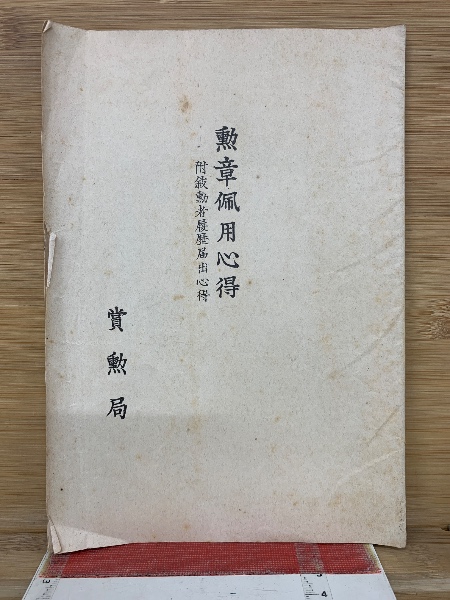 勲章佩用心得
附敍勲者履歴届出心得
賞勲局
3
4